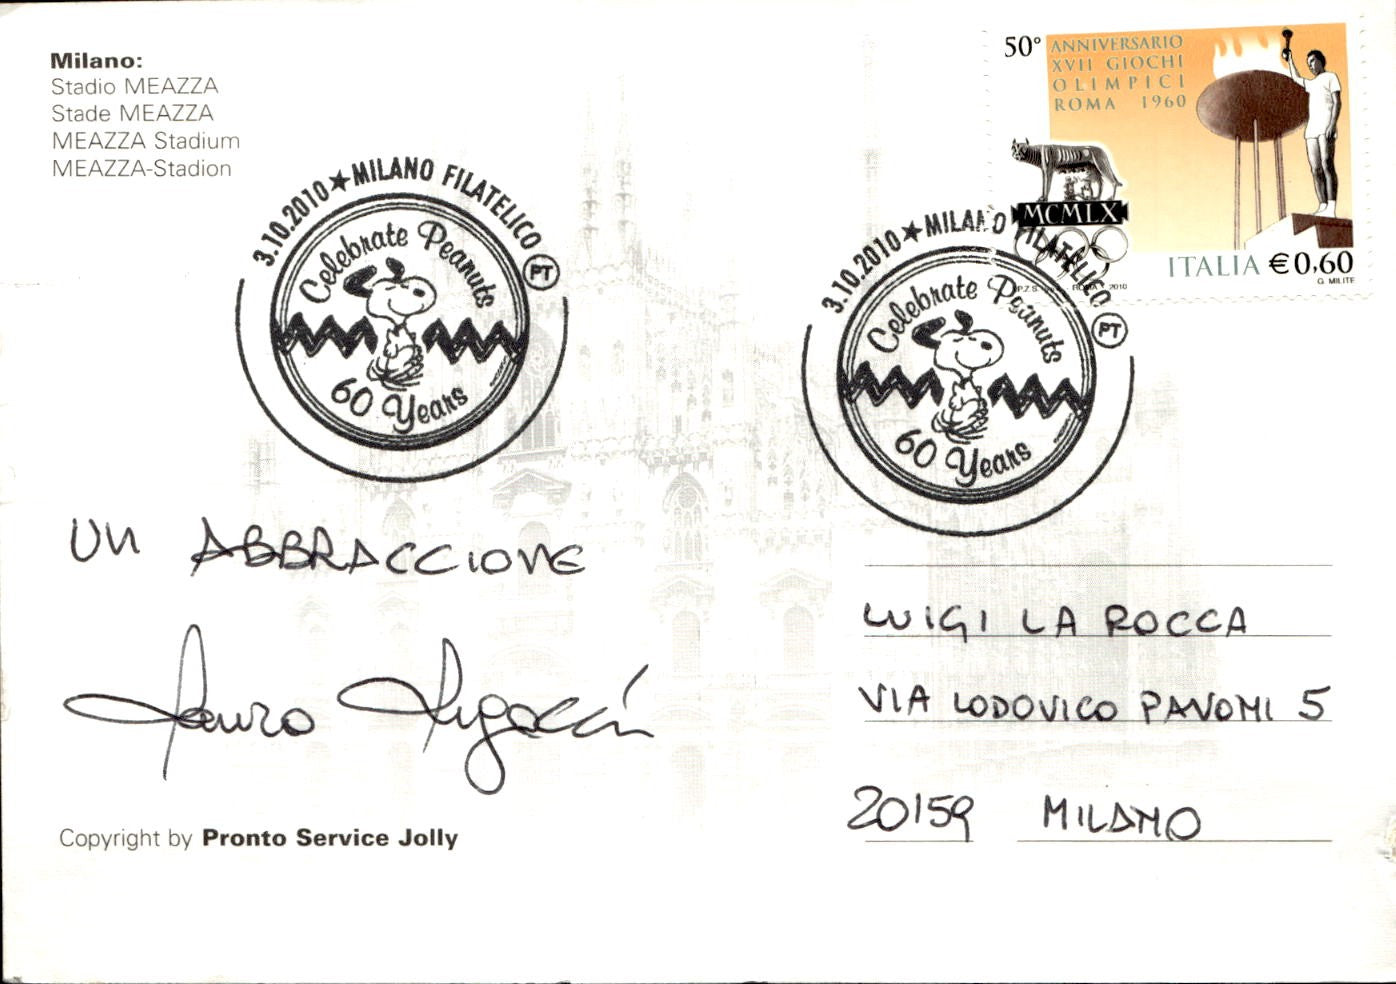 Milano:
Stadio MEAZZA
Stade MEAZZA
MEAZZA Stadium
MEAZZA-Stadion
50° ANNIVERSARIO
XVII GIOCHI
OLIMPICI
ROMA 1960
MCMLX
ITALIA €0,60
ROMA - 2010
G. MILITE
3.10.2010 ★ MILANO FILATELICO PT
Celebrate Peanuts
60 Years
3.10.2010 ★ MILANO FILATELICO PT
Celebrate Peanuts
60 Years
UN ABBRACCIONE
LUIGI LA ROCCA
VIA LODOVICO PAVONI 5
20159 MILANO
Copyright by Pronto Service Jolly